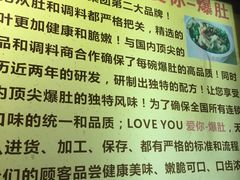 爱你-爆肚
集团第二大品牌!
肚和调料都严格把关,精选的
叶更加健康和脆嫩!与国内顶尖的
和调料商合作确保了每碗爆肚的高品质!同时
历近两年的研发,研制出独特的配方!使
内顶尖爆肚的独特风味!为了确保全国所有连锁
口味的统一和品质;LOVE YOU 爱你-爆肚,无
人进货、加工、保存、都有严格的标准和流程
们的顾客品尝健康美味、嫩脆可口、口齿浓